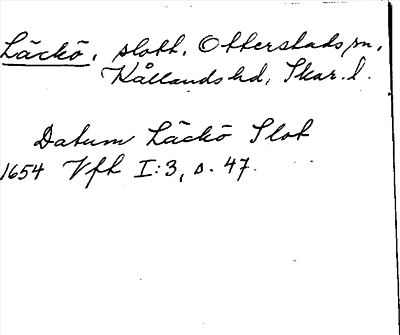 Läckö, slott, Otterstads sn,
Kållands hd, Skar. l.
Datum Läckö Slot
1654 Vfh I:3, s. 47.